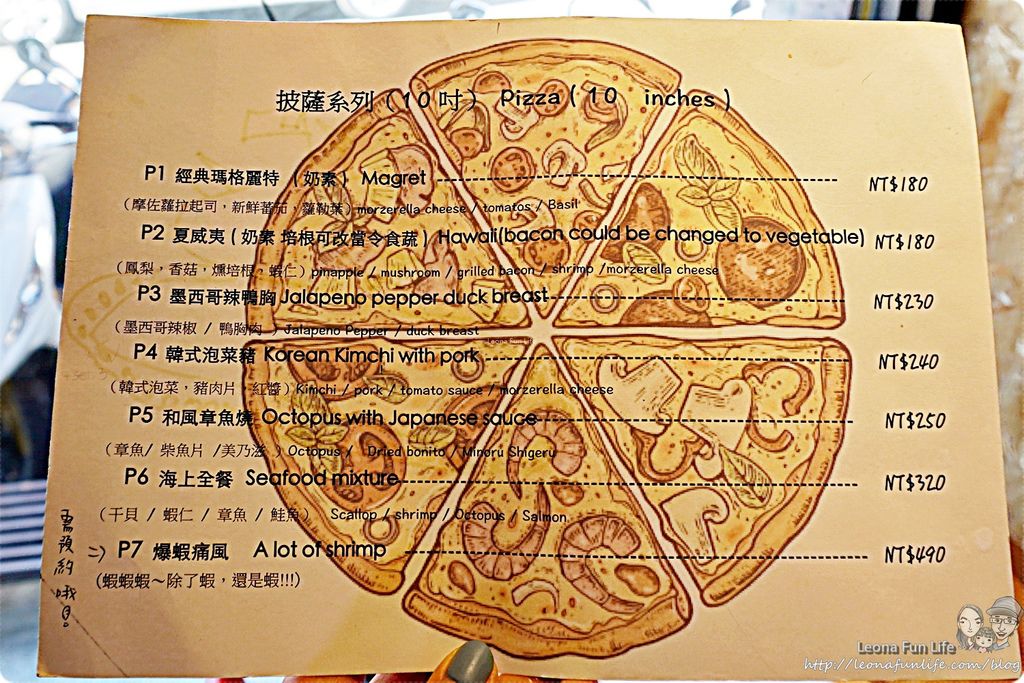 披薩系列（10 吋） Pizza ( 10 inches )
P1 經典瑪格麗特 （奶素） Magret NT$180
（摩佐蘿拉起司，新鮮蕃茄，蘿勒葉）morzerella cheese / tomatos / Basil
P2 夏威夷（奶素 培根可改當令食蔬）Hawaii(bacon could be changed to vegetable) NT$180
（鳳梨，香菇，燻培根，蝦仁）pinapple / mushroom / grilled bacon / shrimp /morzerella cheese
P3 墨西哥辣鴨胸 Jalapeno pepper duck breast NT$230
（墨西哥辣椒 / 鴨胸肉 ）Jalapeno Pepper / duck breast
P4 韓式泡菜豬 Korean Kimchi with pork NT$240
（韓式泡菜，豬肉片，紅醬）Kimchi / pork / tomato sauce / morzerella cheese
P5 和風章魚燒 Octopus with Japanese sauce NT$250
（章魚/ 柴魚片 /美乃滋 ）Octopus / Dried bonito / Minoru Shigeru
P6 海上全餐 Seafood mixture NT$320
（干貝 / 蝦仁 / 章魚 / 鮭魚） Scallop / shrimp / Octopus / Salmon
P7 爆蝦痛風 A lot of shrimp NT$490
（蝦蝦蝦～除了蝦，還是蝦!!!）
需預約哦!
Leona Fun Life
Leona Fun Life
http://leonafunlife.com/blog